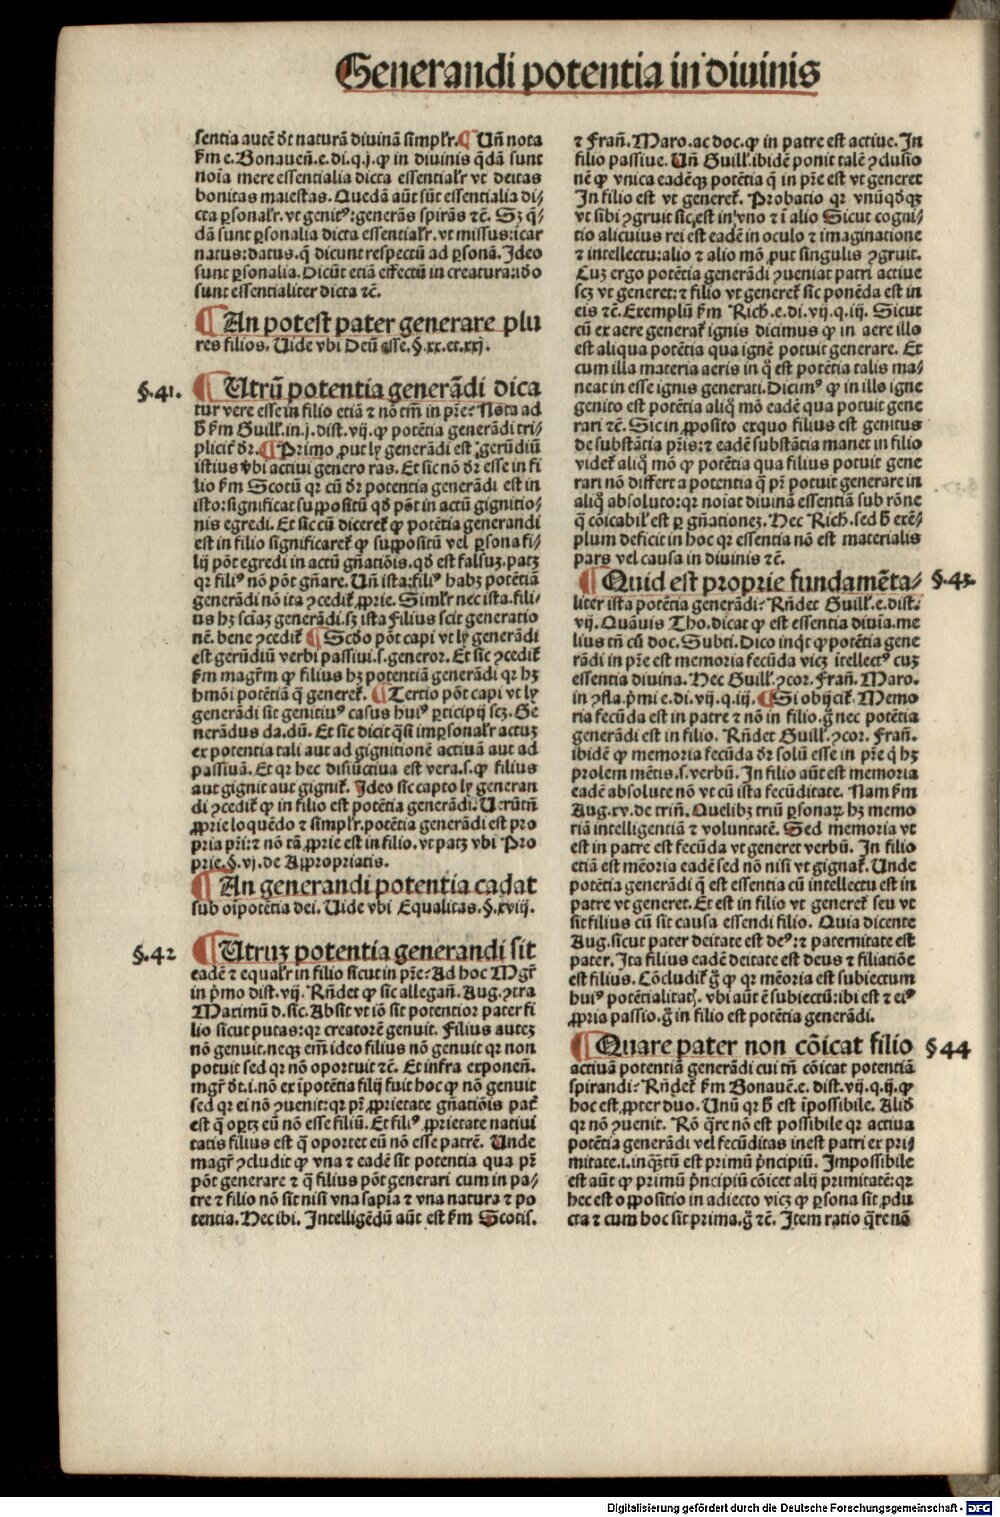 Generandi potentia in diuinis
sentia autē dr̄t naturā diuinā simpłr. ¶ Vn̄ nota
ẜm e. Bonauen̄. e. di. q. j. ꝙ in diuinis q̄dā sunt
noīa mere essentialia dicta essentialr̄ vt deitas
bonitas maiestas. Quedā aūt sūt essentialia di⸗
cta ꝑsonalr̄. vt genitꝰ: generās spirās ⁊c̄. Sꝫ q̄⸗
dā sunt ꝑsonalia dicta essentialr̄. vt missus: icar
natus: datus. q̄ dicunt respectū ad ꝑsonā. Ideo
sunt ꝑsonalia. Dicūt etiā effectū in creatura: iđo
sunt essentialiter dicta ⁊c̄.
¶ An potest pater generare plu
res filios. Vide vbi Deū esse. §. xx. et. xxj.
§. 41. ¶ Vtrū potentia generādi dica
tur vere esse in filio etiā ⁊ nō tm̄ in pr̄e? Nota ad
ħ ẜm Guilł. in. j. dist. vij. ꝙ potētia generādi tri⸗
plicit̄ dr̄. ¶ Primo ꝓut ly generādi est gerūdiū
istius v̄bi actiui genero ras. Et sic nō dr̄ esse in fi
lio ẜm Scotū qr cū dr̄ potentia generādi est in
isto: significat suppositū qđ pōt in actū gignitio⸗
nis egredi. Et sic cū dicereť ꝙ potētia generandi
est in filio significareť ꝙ suppositū vel ꝑsona fi⸗
lij pōt egredi in actū gn̄atiōis. qđ est falsuꝫ. patꝫ
qr filiꝰ nō pōt gn̄are. Vn̄ ista: filiꝰ habꝫ potētiā
generādi nō ita ꝯcediť ꝓprie. Similr̄ nec ista. fili⸗
us hꝫ sciaꝫ generādi. sꝫ ista Filius scit generatio
nē. bene ꝯcediť ¶ Scđo pōt capi vt ly generādi
est gerūdiū verbi passiui. s. generor. Et sic ꝯcediť
ẜm magr̄m ꝙ filius hꝫ potentiā generādi qr hꝫ
hmōi potētiā q̄ genereť. ¶ Tertio pōt capi vt ly
generādi sit genitiuꝰ casus huiꝰ ꝑticipij scꝫ. Ge
nerādus da. dū. Et sic dicit q̄si imꝑsonalr̄ actuꝫ
ex potentia tali aut ad gignitionē actiuā aut ad
passiuā. Et qr hec disiūctiua est vera. s. ꝙ filius
aut gignit aut gigniť. Ideo sic capto ly generan
di ꝯcediť ꝙ in filio est potētia generādi. Verūtn̄
ꝓprie loquēdo ⁊ simplr̄. potētia generādi est pro
pria pr̄i: ⁊ nō tā ꝓprie est in filio. vt patꝫ vbi Pro
prie. §. vj. de Appropriatis.
¶ An generandi potentia cadat
sub oīpotētia dei. Vide vbi Equalitas. §. xviij.
§. 42 ¶ Vtruꝫ potentia generandi sit
eadē ⁊ equalr̄ in filio sicut in pr̄e? Ad hoc Mgr̄
in p̄mo dist. vij. Rn̄det ꝙ sic allegan̄. Aug. ꝯtra
Maximū d. sic. Absit vt iō sit potentior pater fi
lio sicut putas: qr creatorē genuit. Filius auteꝫ
nō genuit. neqꝫ em̄ ideo filius nō genuit qr non
potuit sed qr nō oportuit ⁊c̄. Et infra exponen̄.
mgr̄ dt. i. nō ex īpotētia filij fuit hoc ꝙ nō genuit
sed qr ei nō ꝯuenit: qr pr̄ ꝓprietate gn̄atiōis pať
est q̄ oꝑtꝫ eū nō esse filiū. Et filiꝰ ꝓprietate natiui
tatis filius est q̄ oportet eū nō esse patrē. Unde
magr̄ ꝯcludit ꝙ vna ⁊ eadē sit potentia qua pr̄
pōt generare ⁊ q̄ filius pōt generari cum in pa⸗
tre ⁊ filio nō sit nisi vna sapīa ⁊ vna natura ⁊ po
tentia. Hec ibi. Intelligēdū aūt est ẜm Scotis.
⁊ Fran̄. Maro. ac doc. ꝙ in patre est actiue. In
filio passiue. Vn̄ Guilł. ibidē ponit talē ꝯclusio
nē ꝙ vnica eadēqꝫ potētia q̄ in pr̄e est vt generet
In filio est vt genereť. Probatio qr vnūqđqꝫ
vt sibi ꝯgruit sic est in vno ⁊ ī alio Sicut cogni⸗
tio alicuius rei est eadē in oculo ⁊ imaginatione
⁊ intellectu: alio ⁊ alio mō ꝓut singulis ꝯgruit.
Cuꝫ ergo potētia generādi ꝯueniat patri actiue
scꝫ vt generet: ⁊ filio vt genereť sic ponēda est in
eis ⁊c̄. Exemplū ẜm Rich. e. di. vij. q. iij. Sicut
cū ex aere generať ignis dicimus ꝙ in aere illo
est aliqua potētia qua ignē potuit generare. Et
cum illa materia aeris in q̊ est potētia talis ma⸗
neat in esse ignis generati. Dicimꝰ ꝙ in illo igne
genito est potētia aliq̊ mō eadē qua potuit gene
rari ⁊c̄. Sic in ꝓposito exquo filius est genitus
de substātia pr̄is: ⁊ eadē substātia manet in filio
videť aliq̊ mō ꝙ potētia qua filius potuit gene
rari nō differt a potentia q̄ pr̄ potuit generare in
aliq̊ absoluto: qr noīat diuinā essentiā sub rōne
q̄ cōicabil̄ est ꝑ gn̄ationeꝫ. Hec Rich. sed ħ exē⸗
plum deficit in hoc qr essentia nō est materialis
pars vel causa in diuinis ⁊c̄.
¶ Quid est proprie fundamēta⸗ §. 43.
liter ista potētia generādi? Rn̄det Guilł. e. dist.
vij. Quāuis Tho. dicat ꝙ est essentia diuīa. me
lius tn̄ cū doc. Subti. Dico inq̄t ꝙ potētia gene
rādi in pr̄e est memoria fecūda vicꝫ ītellectꝰ cuꝫ
essentia diuina. Hec Guilł. ꝯcor. Fran̄. Maro.
in ꝯfla. p̄mi e. di. vij. q. iij. ¶ Si obijciť. Memo
ria fecūda est in patre ⁊ nō in filio. g̊ nec potētia
generādi est in filio. Rn̄det Guilł. ꝯcor. Fran̄.
ibidē ꝙ memoria fecūda dr̄ solū esse in pr̄e q̄ hꝫ
prolem mētis. s. verbū. In filio aūt est memoria
eadē absolute nō vt cū ista fecūditate. Nam ẜm
Aug. xv. de trin̄. Quelibꝫ triū ꝑsonaꝝ hꝫ memo
riā intelligentiā ⁊ voluntatē. Sed memoria vt
est in patre est fecūda vt generet verbū. In filio
etiā est mēoria eadē sed nō nisi vt gignať. Unde
potētia generādi q̄ est essentia cū intellectu est in
patre vt generet. Et est in filio vt genereť seu vt
sit filius cū sit causa essendi filio. Quia dicente
Aug. sicut pater deitate est deꝰ: ⁊ paternitate est
pater. Ita filius eadē deitate est deus ⁊ filiatiōe
est filius. Cōcludiť g̊ ꝙ qr mēoria est subiectum
huiꝰ potētialitaꝭ. vbi aūt ē subiectū: ibi est ⁊ eiꝰ
ꝓpria passio. g̊ in filio est potētia generādi.
¶ Quare pater non cōicat filio § 44
actiuā potentiā generādi cui tn̄ cōicat potentiā
spirandi? Rn̄deť ẜm Bonauē. e. dist. vij. q. ij. ꝙ
hoc est ꝓpter duo. Vnū qr ħ est īpossibile. Aliđ
qr nō ꝯuenit. Rō q̄re nō est possibile qr actiua
potētia generādi vel fecūditas inest patri ex pri⸗
mitate. i. inq̄ꝫtū est primū p̄ncipiū. Impossibile
est aūt ꝙ primū p̄ncipiū cōicet alij primitatē: qr
hec est oppositio in adiecto vicꝫ ꝙ ꝑsona sit ꝓdu
cta ⁊ cum hoc sit prima. g̊ ⁊c̄. Item ratio q̄re nō
Digitalisierung gefördert durch die Deutsche Forschungsgemeinschaft - DFG